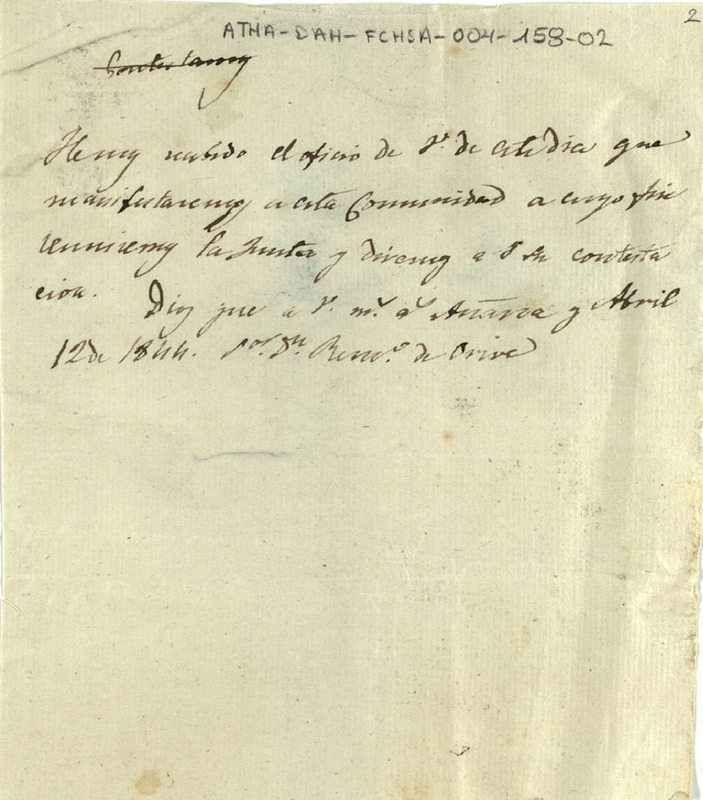 2
ATHA-DAH-FCHSA-004-158-02
Contestamos
Hemos recibido el oficio de V. de este dia que
manifestaremos a esta Comunidad a cuyo fin
reuniremos la Junta y diremos a V. su contesta
cion. Dios gue a V. ms. as. Añana y Abril
12 de 1844. Sor. Dn. Remo. de Orive